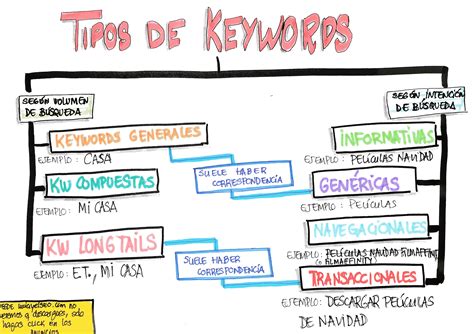 TIPOS DE KEYWORDS
SEGÚN VOLUMEN
DE BÚSQUEDA
KEYWORDS GENERALES
EJEMPLO: CASA
KW COMPUESTAS
EJEMPLO: MI CASA
KW LONGTAILS
EJEMPLO: E.T., MI CASA
SUELE HABER
CORRESPONDENCIA
SUELE HABER
CORRESPONDENCIA
SEGÚN INTENCIÓN
DE BÚSQUEDA
INFORMATIVAS
EJEMPLO: PELÍCULAS NAVIDAD
GENÉRICAS
EJEMPLO: PELÍCULAS
NAVEGACIONALES
EJEMPLO: PELÍCULAS NAVIDAD FILMAFFINITY
(O FILMAFFINITY)
TRANSACCIONALES
EJEMPLO: DESCARGAR PELÍCULAS
DE NAVIDAD
.com no
y descargues, solo
hagas click en los
ANUNCIOS